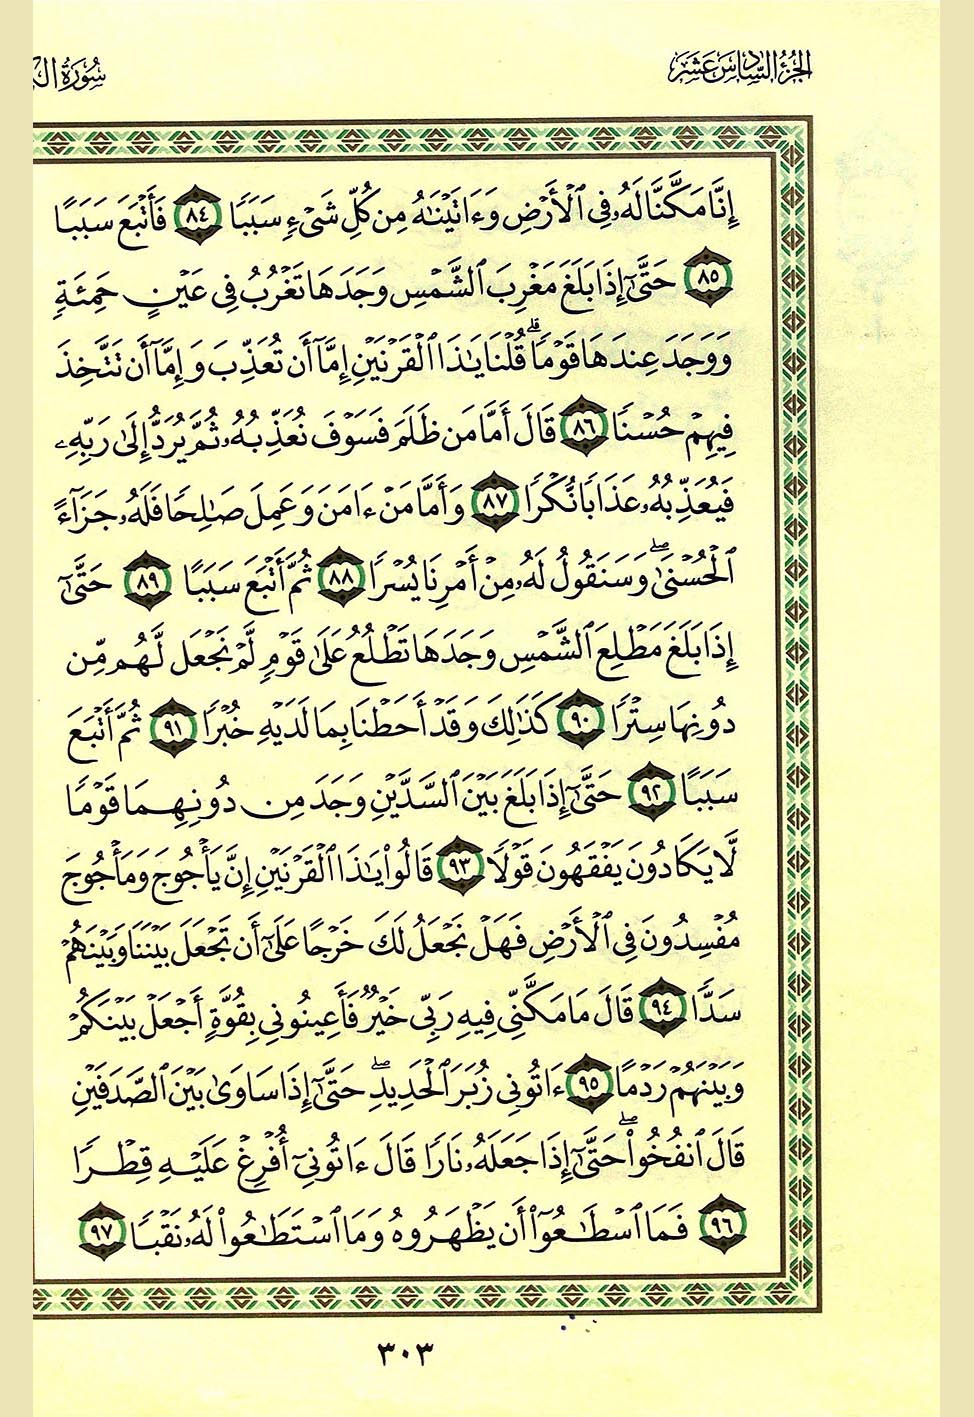 الجزء السادس عشر
سورة
إِنَّا مَكَّنَّا لَهُۥ فِى ٱلْأَرْضِ وَءَاتَيْنَٰهُ مِن كُلِّ شَىْءٍ سَبَبًا ٨٤ فَأَتْبَعَ سَبَبًا
٨٥ حَتَّىٰٓ إِذَا بَلَغَ مَغْرِبَ ٱلشَّمْسِ وَجَدَهَا تَغْرُبُ فِى عَيْنٍ حَمِئَةٍ
وَوَجَدَ عِندَهَا قَوْمًا ۗ قُلْنَا يَٰذَا ٱلْقَرْنَيْنِ إِمَّآ أَن تُعَذِّبَ وَإِمَّآ أَن تَتَّخِذَ
فِيهِمْ حُسْنًا ٨٦ قَالَ أَمَّا مَن ظَلَمَ فَسَوْفَ نُعَذِّبُهُۥ ثُمَّ يُرَدُّ إِلَىٰ رَبِّهِۦ
فَيُعَذِّبُهُۥ عَذَابًا نُّكْرًا ٨٧ وَأَمَّا مَنْ ءَامَنَ وَعَمِلَ صَٰلِحًا فَلَهُۥ جَزَآءً
ٱلْحُسْنَىٰ ۖ وَسَنَقُولُ لَهُۥ مِنْ أَمْرِنَا يُسْرًا ٨٨ ثُمَّ أَتْبَعَ سَبَبًا ٨٩ حَتَّىٰٓ
إِذَا بَلَغَ مَطْلِعَ ٱلشَّمْسِ وَجَدَهَا تَطْلُعُ عَلَىٰ قَوْمٍ لَّمْ نَجْعَل لَّهُم مِّن
دُونِهَا سِتْرًا ٩٠ كَذَٰلِكَ وَقَدْ أَحَطْنَا بِمَا لَدَيْهِ خُبْرًا ٩١ ثُمَّ أَتْبَعَ
سَبَبًا ٩٢ حَتَّىٰٓ إِذَا بَلَغَ بَيْنَ ٱلسَّدَّيْنِ وَجَدَ مِن دُونِهِمَا قَوْمًا
لَّا يَكَادُونَ يَفْقَهُونَ قَوْلًا ٩٣ قَالُوا۟ يَٰذَا ٱلْقَرْنَيْنِ إِنَّ يَأْجُوجَ وَمَأْجُوجَ
مُفْسِدُونَ فِى ٱلْأَرْضِ فَهَلْ نَجْعَلُ لَكَ خَرْجًا عَلَىٰٓ أَن تَجْعَلَ بَيْنَنَا وَبَيْنَهُمْ
سَدًّا ٩٤ قَالَ مَا مَكَّنِّى فِيهِ رَبِّى خَيْرٌ فَأَعِينُونِى بِقُوَّةٍ أَجْعَلْ بَيْنَكُمْ
وَبَيْنَهُمْ رَدْمًا ٩٥ ءَاتُونِى زُبَرَ ٱلْحَدِيدِ ۖ حَتَّىٰٓ إِذَا سَاوَىٰ بَيْنَ ٱلصَّدَفَيْنِ
قَالَ ٱنفُخُوا۟ ۖ حَتَّىٰٓ إِذَا جَعَلَهُۥ نَارًا قَالَ ءَاتُونِىٓ أُفْرِغْ عَلَيْهِ قِطْرًا
٩٦ فَمَا ٱسْطَٰعُوٓا۟ أَن يَظْهَرُوهُ وَمَا ٱسْتَطَٰعُوا۟ لَهُۥ نَقْبًا ٩٧
٣٠٣